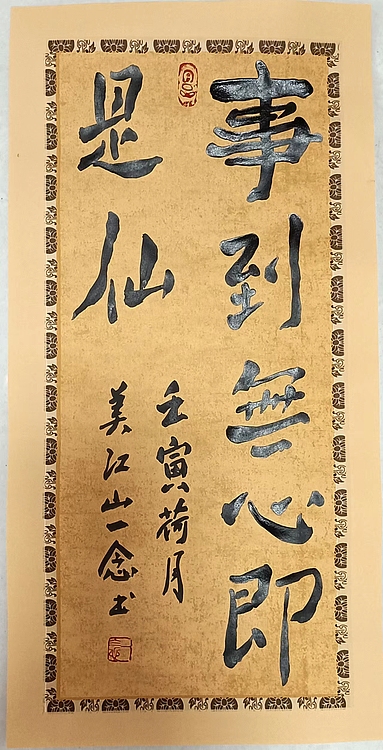 事到無心即
是仙
壬寅荷月
美江山一念书